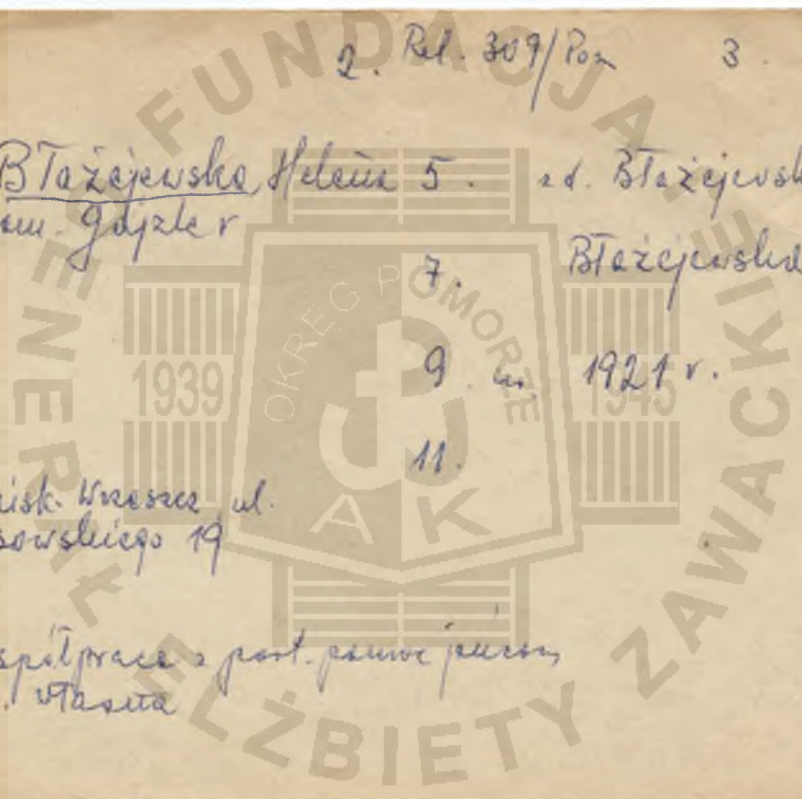 2. Rel. 309/Pom 3.
Błażejewska Helena 5. z d. Błażejewsk
7. Błażejewska
9. ur. 1921 r.
11.
Wrzeszcz ul.
sowskiego 19
spółpraca z part.
własna
FUNDACJA
GENERAŁ ELŻBIETY ZAWACKIEJ
OKRĘG POMORZE
1939
1945
AK